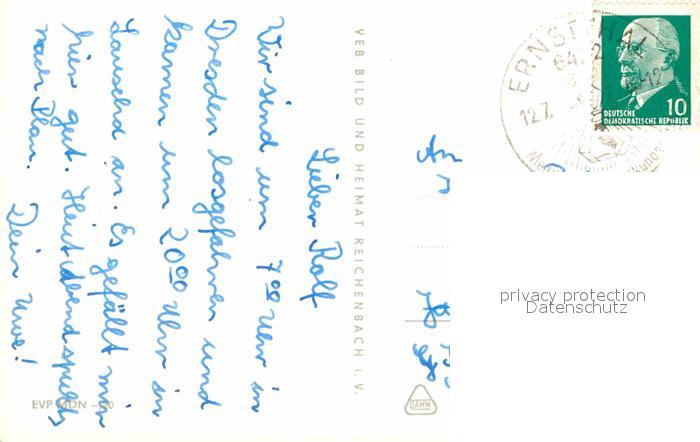 Lieber Rolf
Wir sind um 7⁰⁰ Uhr in
Dresden losgefahren und
kamen um 20⁰⁰ Uhr in
Lauscha an. Es gefällt mir
hier gut. Heut abend spielts
nach Plan.
Dein Uwe!
VEB BILD UND HEIMAT REICHENBACH i. V.
EVP MDN –
DAMW
An
ERNSTTHAL
12.7.
10
DEUTSCHE
DEMOKRATISCHE REPUBLIK
privacy protection
Datenschutz